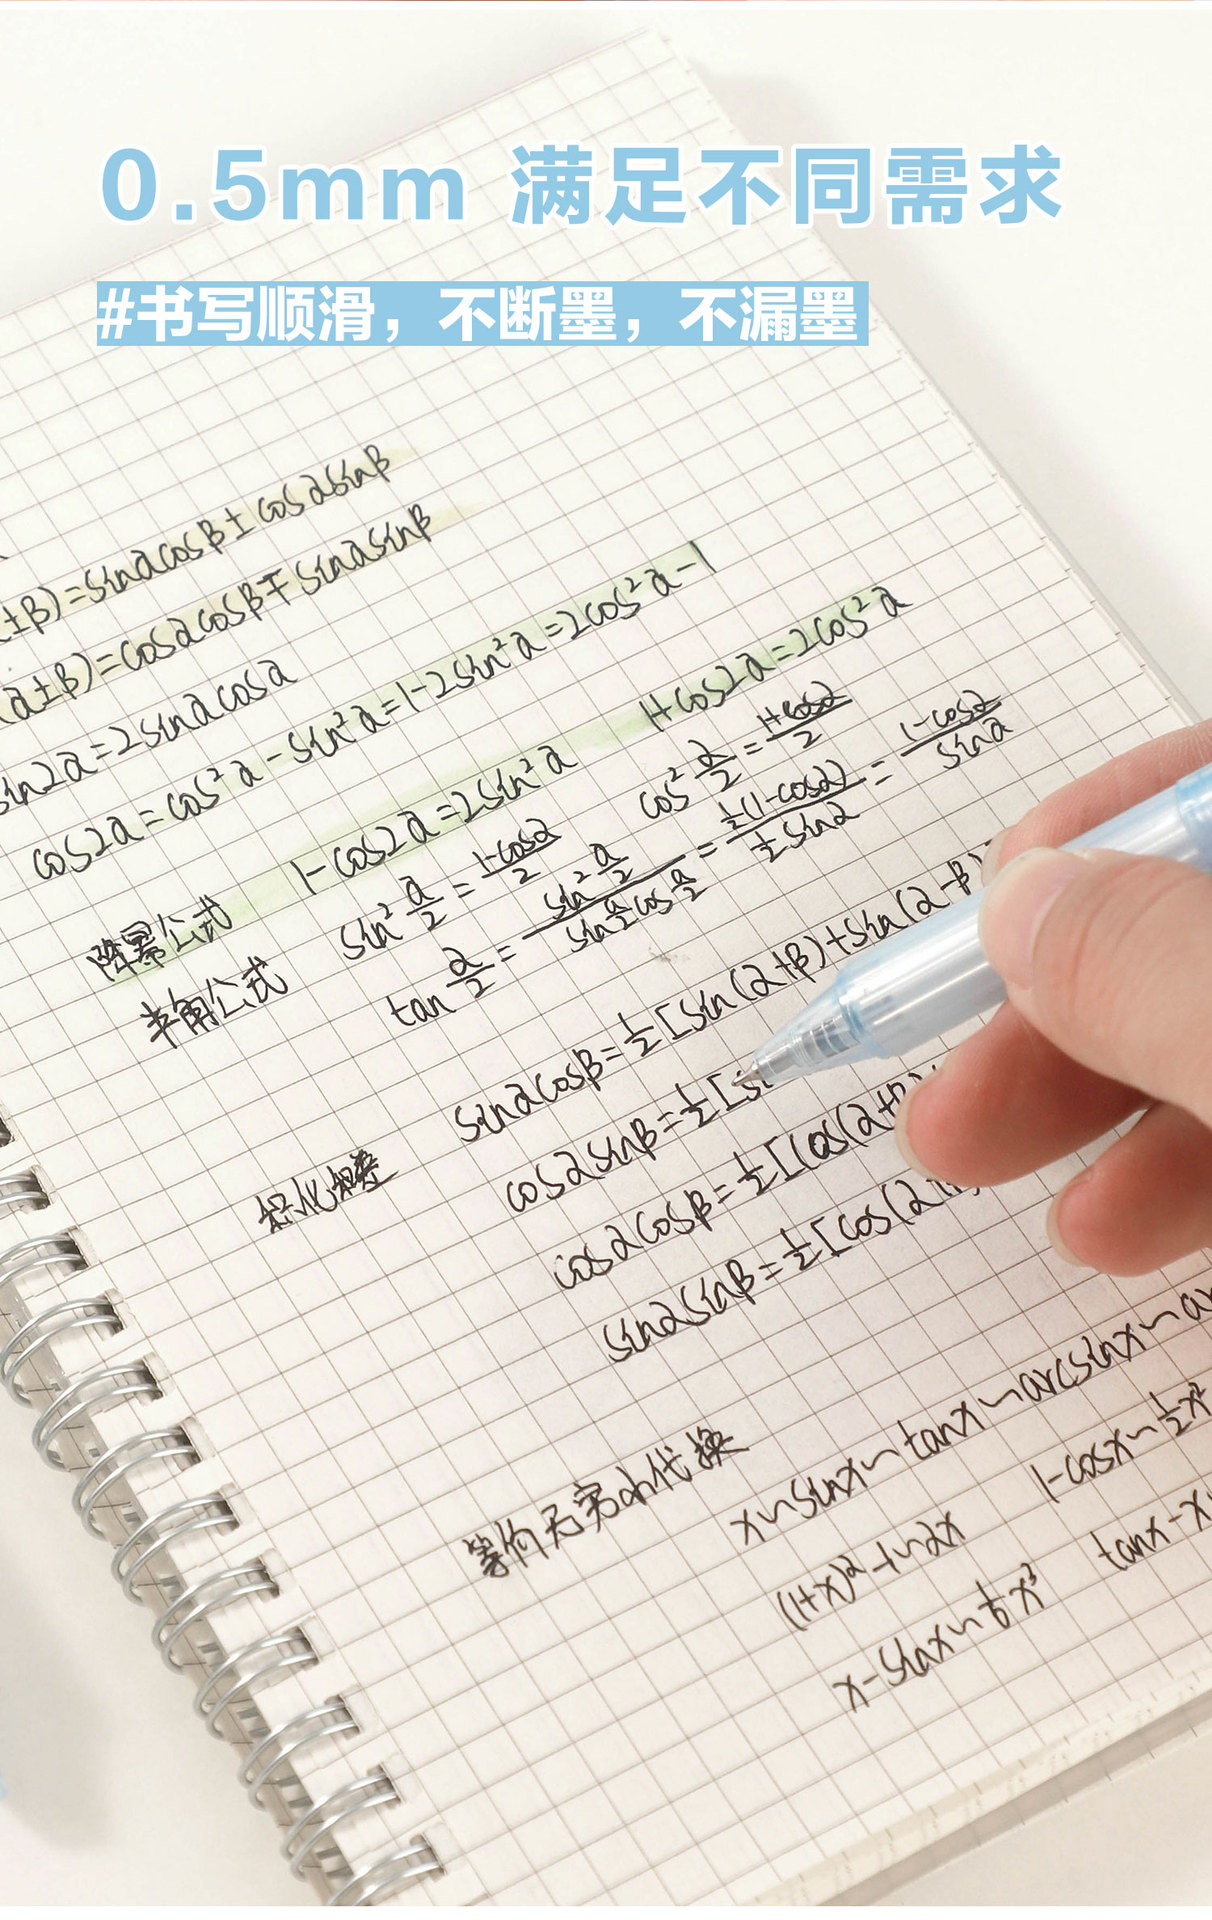 0.5mm 满足不同需求
#书写顺滑，不断墨，不漏墨
±β)=sinαcosβ±cosαsinβ
(α±β)=cosαcosβ∓sinαsinβ
sin2α=2sinαcosα
cos2α=cos²α-sin²α=1-2sin²α=2cos²α-1
降幂公式 1-cos2α=2sin²α 1+cos2α=2cos²α
半角公式 sin²α/2=1-cosα/2 cos²α/2=1+cosα/2
tanα/2=sin²α/2/sinα/2cosα/2=½(1-cosα)/½sinα=1-cosα/sinα
sinαcosβ=½[sin(α+β)+sin(α-β)
积化和差 cosαsinβ=½[si
cosαcosβ=½[cos(α+β)
sinαsinβ=½[cos(α+
等价无穷小代换 x~sinx~tanx~arcsinx~ar
(1+x)²-1~2x 1-cosx~½x²
x-sinx~⅙x³ tanx-x